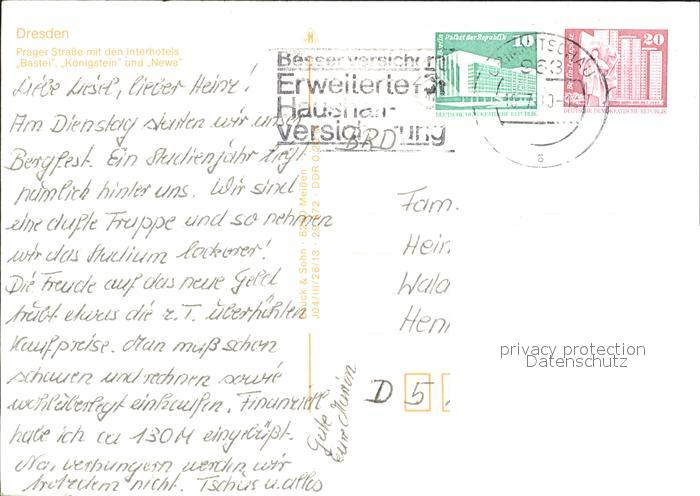 Dresden
Prager Straße mit den Interhotels
„Bastei", „Königstein" und „Newa"
Liebe Liesel, lieber Heinz!
Am Dienstag starten wir unser
Bergfest. Ein Studienjahr liegt
nämlich hinter uns. Wir sind
eine dufte Truppe und so nehmen
wir das Studium lockerer!
Die Freude auf das neue Geld
trübt etwas die z.T. überhöhten
Kaufpreise. Man muß schon
schauen und rechnen sowie
wohlüberlegt einkaufen. Finanziell
habe ich ca 130M eingebüßt.
Na, verhungern werden wir
trotzdem nicht. Tschüs u. alles
Gute
Eure
Besser versichert
Erweiterte
Haushalt-
versicherung
BRD
Berlin Palast der Republik
10
DEUTSCHE DEMOKRATISCHE REPUBLIK
20
DEUTSCHE DEMOKRATISCHE REPUBLIK
963
Fam.
Hein
Wala
Henr
D 5
Brück & Sohn · Meißen
J04/III/26/13 DDR
privacy protection
Datenschutz